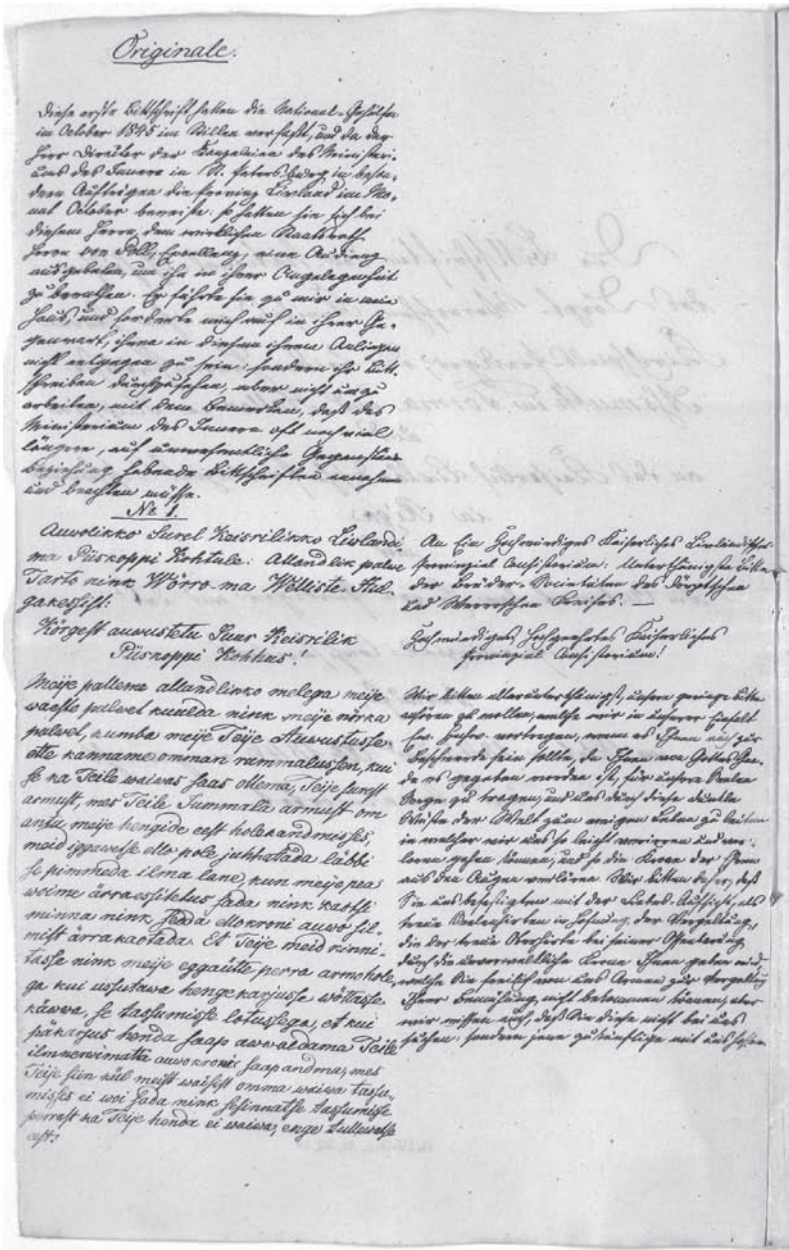 Originale.
Diese erste Bittschrift hatten die National-Gehülfen
im October 1845 im Stillen verfaßt, und da der
Herr Director der Kanzeleien des Ministeri-
ums des Innern in St. Petersburg in beson-
dern Aufträgen die Provinz Livland im Mo-
nat October bereiste: so hatten sie sich bei
diesem Herrn, dem wirklichen Staatsrath
Herrn von Poll, Excellenz, eine Audienz
ausgebeten, um ihn in ihrer Angelegenheit
zu berathen. Er führte sie zu mir in mein
Haus, und forderte mich auf in ihrer Ge-
genwart, ihnen in diesem ihrem Anliegen
nicht entgegen zu sein: sondern ihr Bitt-
schreiben durchzusehen, aber nicht umzu-
arbeiten, mit dem Bemerken, daß das
Ministerium des Innern oft noch viel
längere, auf unwesentliche Gegenstände
Beziehung habende Bittschriften annehmen
und beachten müsse.
No 1.
Auwolikko Surel Keisrilikko Liwlandi
ma Püskoppi Kohtule: Allandlik palwe
Tarto nink Wörro-ma Welliste Kul-
gakessist:
Körgest auwustetu Suur Keisrilik
Püskoppi Kohhus!
Meije palleme allandlikko melega meije
waeste palwet kuulda nink meije nörka
palwet, kumba meije Teije Auwustusse
ette kanname omman rammalussen, kui
se ka Teile waiwas saas ollema, Teije surest
armust, mes Teile Jummala armust om
antu meije hengide eest holekandmisses,
meid iggawetse ello pole juhhatada läbbi
se pimmeda ilma lane, kun meije pea
woime ärraessitetus sada nink kattsi
minna nink sedda ellokroni auwo sil-
mist ärrakaotada. Et Teije meid kinni-
tasse nink meije eggaütte perra armohole-
ga kui ussutawa hengekarjusse wöttasse
käwwa, se tassumisse lotussega, et kui
päkarjus henda saap awwaldama Teile
ilmnerwimata auwokroni saap andma, mes
Teije siin kül meist waisist omma waiwa tassu-
misses ei woi sada nink sesinnatse tassumisse
perrast ka Teije henda ei waiwa, enge tullewatse
eest:
An Ein Hochwürdiges Kaiserliches Livländisches
Provinzial Consistorium: Unterthänigste Bitte
der Brüder-Societäten des Dörptschen
und Werroschen Kreises. —
Hochwürdiges Hochgeehrtes Kaiserliches
Provinzial Consistorium!
Wir bitten allerunterthänigst, unsere geringe Bitte
erhören zu wollen, welche wir in unserer Einfalt
vortragen, wenn es Ihnen auch zur
Beschwerde sein sollte, da Ihnen von Gottes Gna-
de es gegeben worden ist, für unsere Seelen
Sorge zu tragen, und uns durch diese dunkle
Wüste der Welt zum ewigen Leben zu leiten
in welcher wir uns so leicht verirren und ver-
loren gehen können, und so die Krone der Ehren
aus den Augen verlören. Wir bitten daher, daß
Sie uns befestigten mit der Liebes-Aufsicht, als
treue Seelenhirten in Hoffnung der Vergeltung,
die der treue Oberhirte bei seiner Offenbarung
durch die unverwelkliche Krone Ihnen geben wird
welche Sie freilich von uns Armen zur Vergeltung
Ihrer Bemühung nicht bekommen können, aber
wir wissen auch, daß Sie diese nicht bei uns
suchen: sondern jene zukünftige mit uns